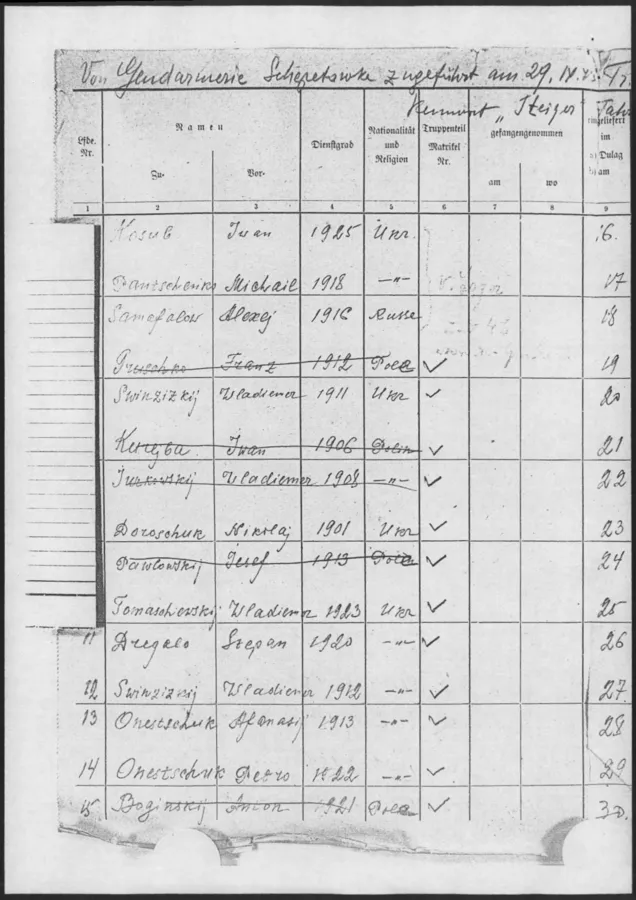 Von Gendarmerie Schepetowka zugeführt am 29. IV. 43.
Kennort „Steiger"
Lfde. Nr.
Namen
Zu-
Vor-
Dienstgrad
Nationalität und Religion
Truppenteil Matrikel Nr.
gefangengenommen
am
wo
eingeliefert im
a) Dulag
b) am
1 2 3 4 5 6 7 8 9
Kosub Iwan 1925 Ukr. 16.
Pantschenko Michail 1918 -"- 17
Samofalow Alexej 1916 Russe 18
Pruschko Franz 1912 Pole ✓ 19
Swinzizkij Wladiemer 1911 Ukr ✓ 20
Iwan 1906 Polin ✓ 21
Jurkowskij Wladiemer 1908 -"- ✓ 22
Doroschuk Nikolaj 1901 Ukr ✓ 23
Pawlowskij Josef 1913 Pole ✓ 24
Tomaschewskij Wladiemer 1923 Ukr ✓ 25
11 Dregalo Stepan 1920 -"- ✓ 26
12 Swinzizkij Wladiemer 1912 -"- ✓ 27.
13 Onestschuk Afanasij 1913 -"- ✓ 28
14 Onestschuk Petro 1922 -"- ✓ 29
15 Boginskij Anton 1921 Pole ✓ 30.